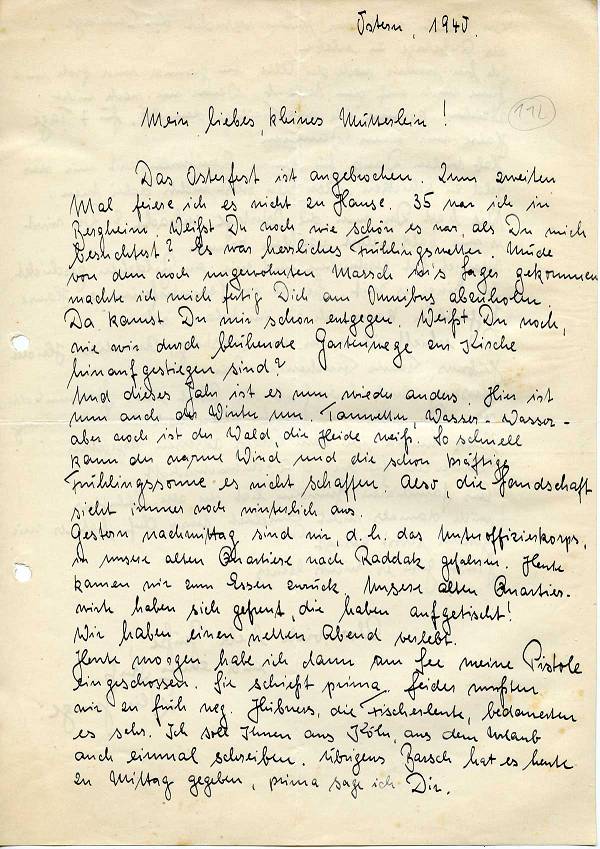 Ostern, 1940.
112
Mein liebes, kleines Mütterlein!
Das Osterfest ist angebrochen. Zum zweiten
Mal feiere ich es nicht zu Hause. 35 war ich in
Bergheim. Weißt Du noch wie schön es war, als Du mich
besuchtest? Es war herrliches Frühlingswetter. Müde
von dem noch ungewohnten Marsch ins Lager gekommen
machte ich mich fertig Dich am Omnibus abzuholen.
Da kamst Du mir schon entgegen. Weißt Du noch,
wie wir durch blühende Gartenwege zur Kirche
hinaufgestiegen sind?
Und dieses Jahr ist es nun wieder anders. Hier ist
nun auch der Winter um. Tauwetter, Wasser - Wasser -
aber noch ist der Wald, die Heide weiß. So schnell
kann der warme Wind und die schon kräftige
Frühlingssonne es nicht schaffen. Also, die Landschaft
sieht immer noch winterlich aus.
Gestern nachmittag sind wir, d.h. das Unteroffizierkorps,
in unsere alten Quartiere nach Raddak gefahren. Heute
kamen wir zum Essen zurück. Unsere alten Quartier-
wirte haben sich gefreut, die haben aufgetischt!
Wir haben einen netten Abend verlebt.
Heute morgen habe ich dann am See meine Pistole
eingeschossen. Sie schießt prima. Leider mußten
wir zu früh weg. Hübners, die Fischerleute, bedauerten
es sehr. Ich soll Ihnen aus Köln, aus dem Urlaub
auch einmal schreiben. Übrigens Barsch hat es heute
zu Mittag gegeben, prima sage ich Dir.